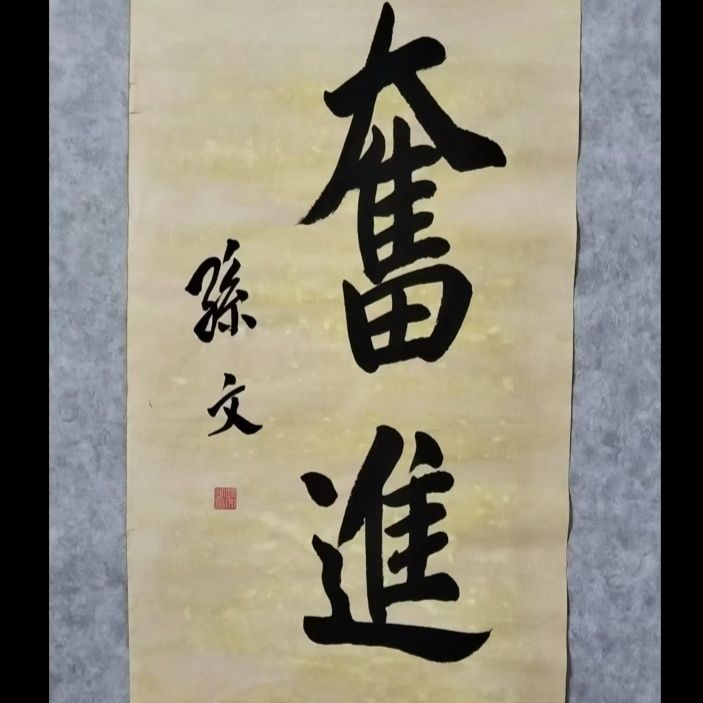 奮進
孫文